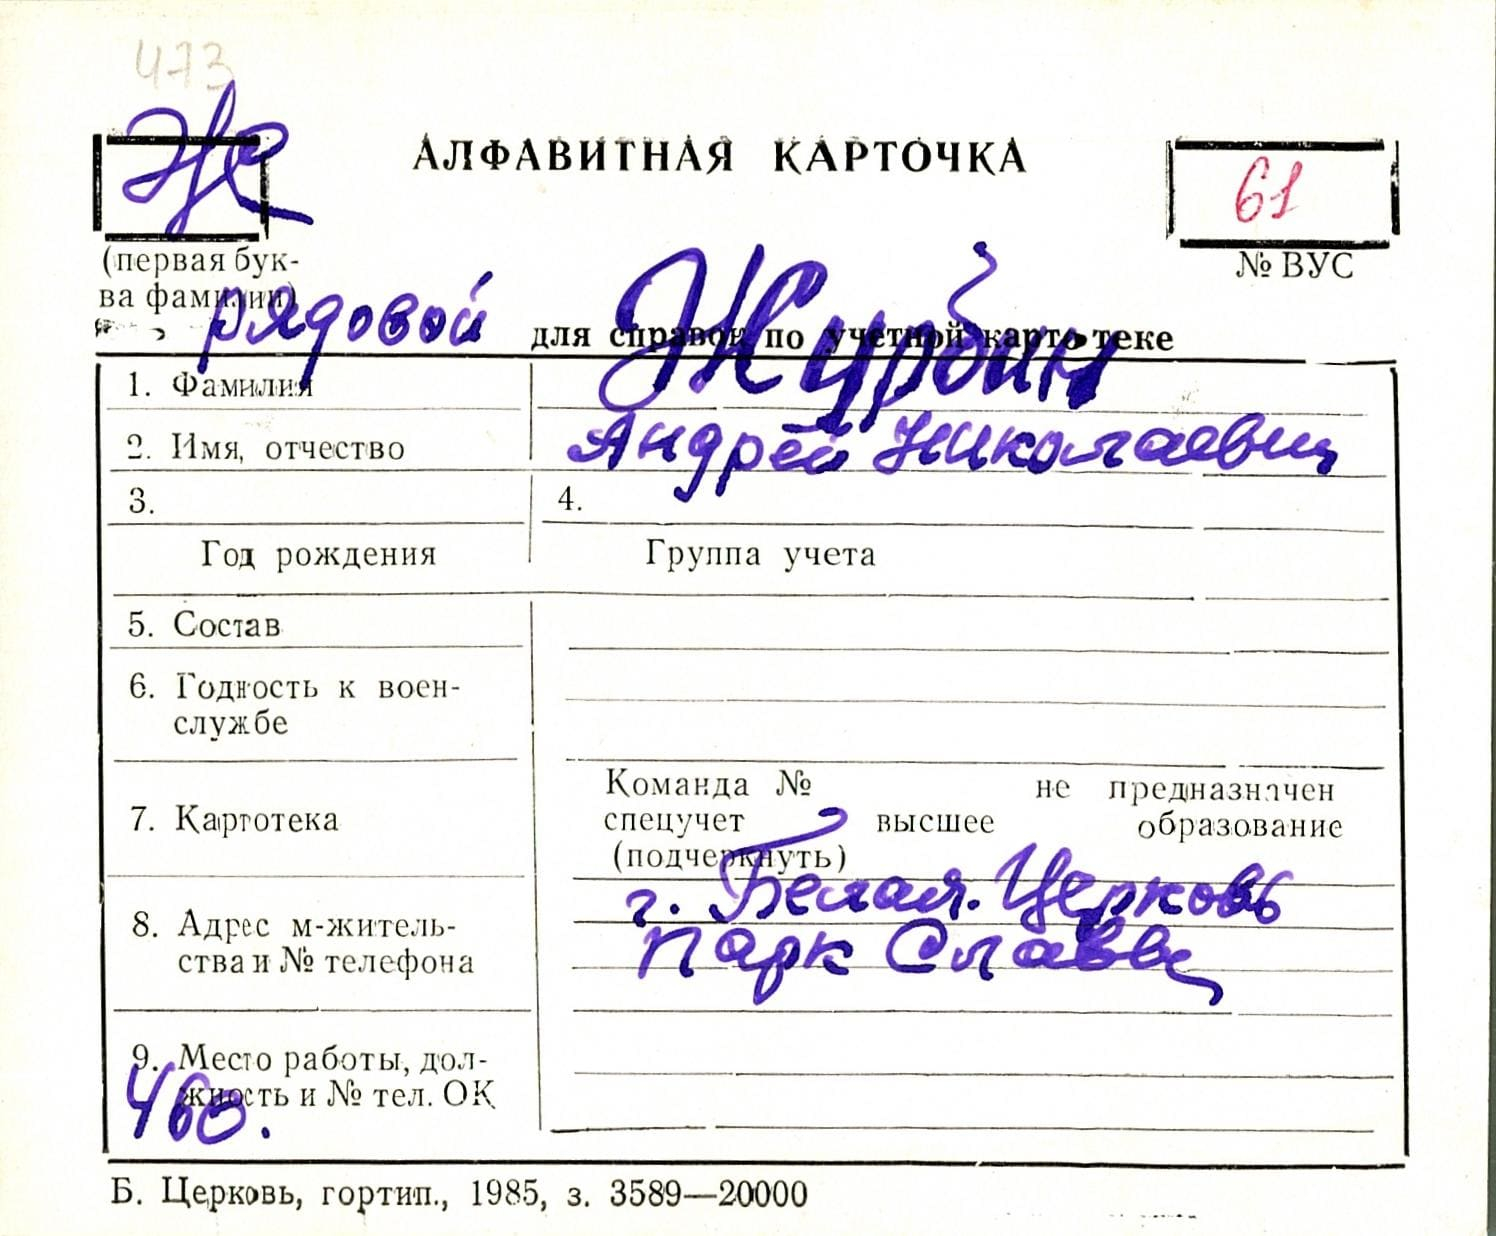 473
Ж
АЛФАВИТНАЯ КАРТОЧКА
61
(первая бук-
ва фамилии)
№ ВУС
рядовой
для справок по учетной картотеке
1. Фамилия Журбин
2. Имя, отчество Андрей Николаевич
3. 4.
Год рождения Группа учета
5. Состав
6. Годность к воен-
службе
7. Картотека
Команда № не предназначен
спецучет высшее образование
(подчеркнуть)
8. Адрес м-житель-
ства и № телефона
г. Белая Церковь
Парк Славы
9. Место работы, дол-
жность и № тел. ОК
460.
Б. Церковь, гортип., 1985, з. 3589—20000